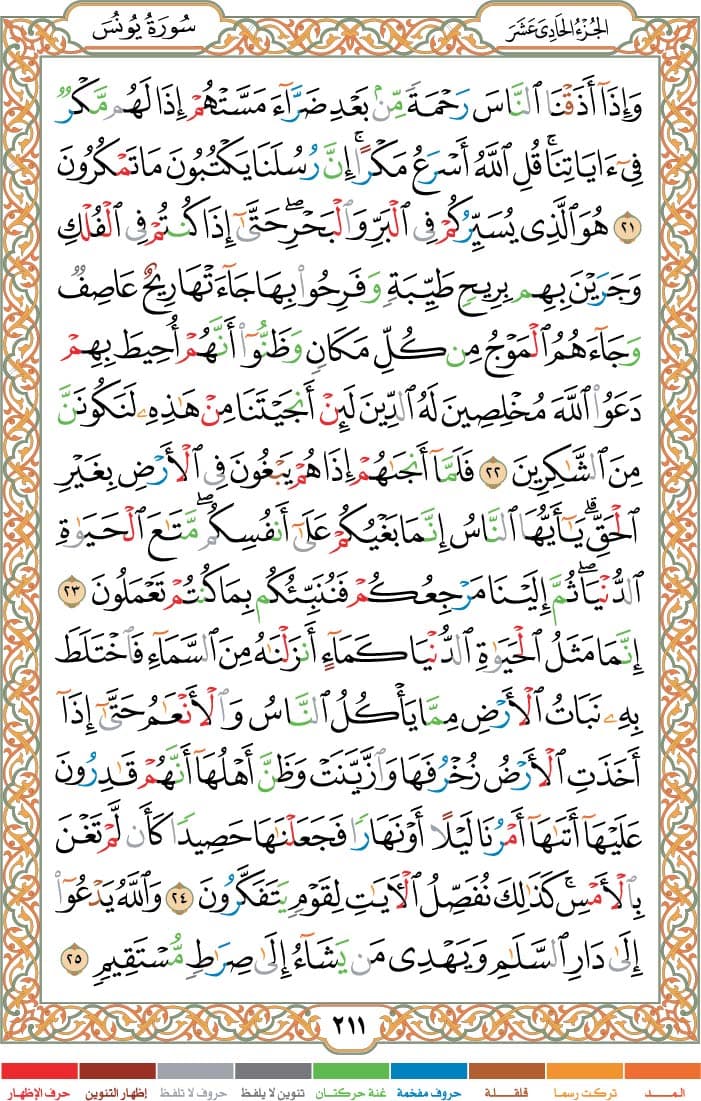 الجُزْءُ الحَادِى عَشَرَ
سُورَةُ يُونُسَ
وَإِذَآ أَذَقْنَا ٱلنَّاسَ رَحْمَةً مِّنۢ بَعْدِ ضَرَّآءَ مَسَّتْهُمْ إِذَا لَهُم مَّكْرٌ
فِىٓ ءَايَاتِنَا ۚ قُلِ ٱللَّهُ أَسْرَعُ مَكْرًا ۚ إِنَّ رُسُلَنَا يَكْتُبُونَ مَا تَمْكُرُونَ
٢١ هُوَ ٱلَّذِى يُسَيِّرُكُمْ فِى ٱلْبَرِّ وَٱلْبَحْرِ ۖ حَتَّىٰٓ إِذَا كُنتُمْ فِى ٱلْفُلْكِ
وَجَرَيْنَ بِهِم بِرِيحٍ طَيِّبَةٍ وَفَرِحُوا۟ بِهَا جَآءَتْهَا رِيحٌ عَاصِفٌ
وَجَآءَهُمُ ٱلْمَوْجُ مِن كُلِّ مَكَانٍ وَظَنُّوٓا۟ أَنَّهُمْ أُحِيطَ بِهِمْ
دَعَوُا۟ ٱللَّهَ مُخْلِصِينَ لَهُ ٱلدِّينَ لَئِنْ أَنجَيْتَنَا مِنْ هَٰذِهِۦ لَنَكُونَنَّ
مِنَ ٱلشَّٰكِرِينَ ٢٢ فَلَمَّآ أَنجَىٰهُمْ إِذَا هُمْ يَبْغُونَ فِى ٱلْأَرْضِ بِغَيْرِ
ٱلْحَقِّ ۗ يَٰٓأَيُّهَا ٱلنَّاسُ إِنَّمَا بَغْيُكُمْ عَلَىٰٓ أَنفُسِكُم ۖ مَّتَٰعَ ٱلْحَيَوٰةِ
ٱلدُّنْيَا ۖ ثُمَّ إِلَيْنَا مَرْجِعُكُمْ فَنُنَبِّئُكُم بِمَا كُنتُمْ تَعْمَلُونَ ٢٣
إِنَّمَا مَثَلُ ٱلْحَيَوٰةِ ٱلدُّنْيَا كَمَآءٍ أَنزَلْنَٰهُ مِنَ ٱلسَّمَآءِ فَٱخْتَلَطَ
بِهِۦ نَبَاتُ ٱلْأَرْضِ مِمَّا يَأْكُلُ ٱلنَّاسُ وَٱلْأَنْعَٰمُ حَتَّىٰٓ إِذَآ
أَخَذَتِ ٱلْأَرْضُ زُخْرُفَهَا وَٱزَّيَّنَتْ وَظَنَّ أَهْلُهَآ أَنَّهُمْ قَٰدِرُونَ
عَلَيْهَآ أَتَىٰهَآ أَمْرُنَا لَيْلًا أَوْ نَهَارًا فَجَعَلْنَٰهَا حَصِيدًا كَأَن لَّمْ تَغْنَ
بِٱلْأَمْسِ ۚ كَذَٰلِكَ نُفَصِّلُ ٱلْءَايَٰتِ لِقَوْمٍ يَتَفَكَّرُونَ ٢٤ وَٱللَّهُ يَدْعُوٓا۟
إِلَىٰ دَارِ ٱلسَّلَٰمِ وَيَهْدِى مَن يَشَآءُ إِلَىٰ صِرَٰطٍ مُّسْتَقِيمٍ ٢٥
٢١١
المــــد تركت رسما قلقــلة حروف مفخمة غنة حركتـان تنوين لا يلفظ حروف لا تلفظ إظهار التنوين حرف الإظهار